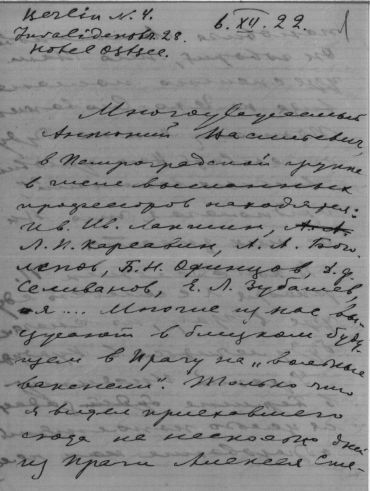 Berlin N. 4.
Invalidenstr 28.
Hotel Ostsee.
6. XII. 22.
1
Многоуважаемый
Антоний Васильевич,
в Петроградской группе
в числе высланных
профессоров находятся:
Ив. Ив. Лапшин,
Л. П. Карсавин, А. А. Бого-
лепов, Б. Н. Одинцов, Д. Ф.
Селиванов, Е. Л. Зубашев,
я.... Многие из нас
в близком буду-
щем в Прагу на „вольные
вакансии". Только что
я видел приехавшего
сюда на несколько дней
из Праги Алексея Сте-